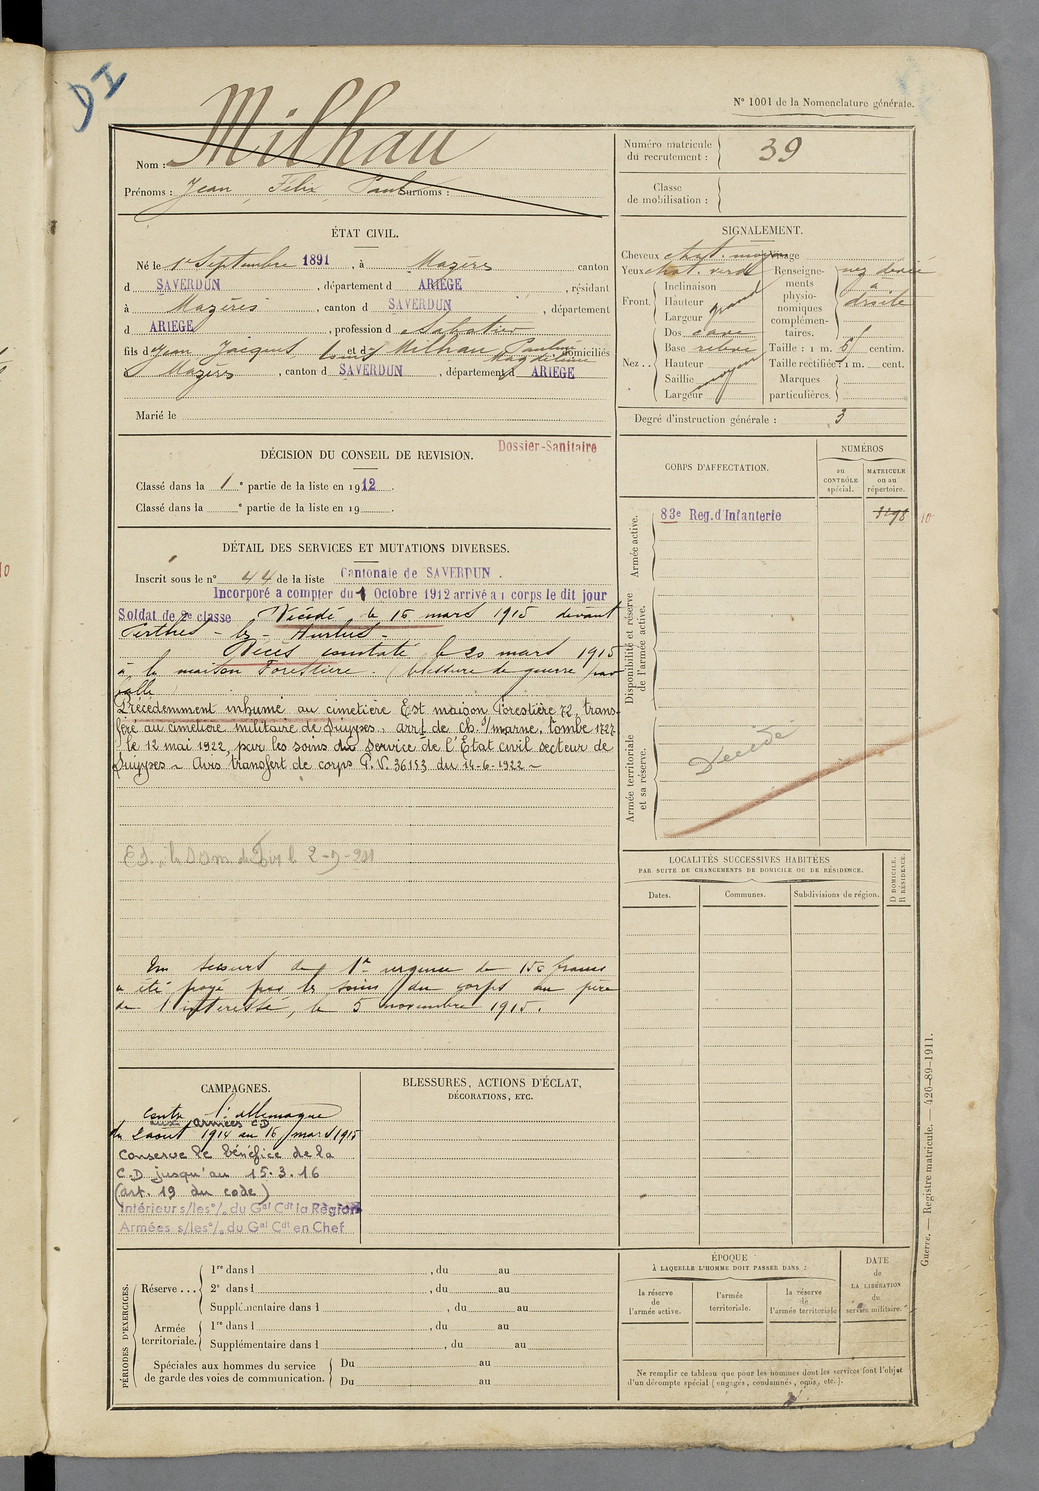 DI
N° 1001 de la Nomenclature générale.
Nom : Milhau
Prénoms : Jean Félix Paul Surnoms :
Numéro matricule du recrutement : 39
Classe de mobilisation :
ÉTAT CIVIL.
Né le 1er Septembre 1891, à Mazères canton
d SAVERDUN, département d ARIEGE, résidant
à Mazères, canton d SAVERDUN, département
d ARIEGE, profession d Sabotier
fils d Jean Jacques Louis et d Milhau Pauline Magdeleine domiciliés
à Mazères, canton d SAVERDUN, département d ARIEGE
Marié le
SIGNALEMENT.
Cheveux chat. moyen
Yeux chat. verd
Visage
Front.
Inclinaison
Hauteur grand
Largeur
Nez..
Dos cave
Base relevé
Hauteur
Saillie moyen
Largeur
Renseignements physionomiques complémentaires. nez dévié à droite
Taille : 1 m. 61 centim.
Taille rectifiée : 1 m. cent.
Marques particulières.
Degré d'instruction générale : 3
DÉCISION DU CONSEIL DE REVISION.
Dossier-Sanitaire
Classé dans la 1e partie de la liste en 1912.
Classé dans la e partie de la liste en 19 .
CORPS D'AFFECTATION.
NUMÉROS
au CONTRÔLE spécial.
MATRICULE ou au répertoire.
Armée active.
83e Reg. d'Infanterie
Disponibilité et réserve de l'armée active.
Armée territoriale et sa réserve.
Décédé
DÉTAIL DES SERVICES ET MUTATIONS DIVERSES.
Inscrit sous le n° 44 de la liste Cantonale de SAVERDUN.
Incorporé a compter du 1 Octobre 1912 arrivé au corps le dit jour
Soldat de 2e classe Décédé le 16 mars 1915 devant
Perthes-les-Hurlus.
Décès constaté le 20 mars 1915
à la maison Forestière (blessure de guerre par
balle
Précédemment inhumé au cimetière Est maison Forestière 72, trans-
féré au cimetière militaire de Suippes, arrt de Ch. s/marne, tombe 1727
le 12 mai 1922, par les soins du Service de l'Etat civil secteur de
Suippes - Avis transfert de corps P.V. 36153 du 14-6-1922 -
Un secours de 1re urgence de 150 francs
a été payé par les soins du corps au père
de l'intéressé, le 5 novembre 1915.
LOCALITÉS SUCCESSIVES HABITÉES
PAR SUITE DE CHANGEMENTS DE DOMICILE OU DE RÉSIDENCE.
Dates.
Communes.
Subdivisions de région.
D DOMICILE. R RÉSIDENCE.
CAMPAGNES.
Contre l'allemagne
aux armées CD
du 2 aout 1914 au 16 mars 1915
Conserve le bénéfice de la
C.D jusqu'au 15.3.16
(art. 19 du code)
Intérieur s/les °/o du Gal Cdt la Région
Armées s/les °/o du Gal Cdt en Chef
BLESSURES, ACTIONS D'ÉCLAT,
DÉCORATIONS, ETC.
PÉRIODES D'EXERCICES.
Réserve...
1re dans l , du au
2e dans l , du au
Supplémentaire dans l , du au
Armée territoriale.
1re dans l , du au
Supplémentaire dans l , du au
Spéciales aux hommes du service de garde des voies de communication.
Du au
Du au
ÉPOQUE
À LAQUELLE L'HOMME DOIT PASSER DANS :
la réserve de l'armée active.
l'armée territoriale.
la réserve de l'armée territoriale
DATE de LA LIBÉRATION du service militaire.
Ne remplir ce tableau que pour les hommes dont les services font l'objet
d'un décompte spécial (engagés, condamnés, omis, etc.).
Guerre. — Registre matricule. — 426-89-1911.